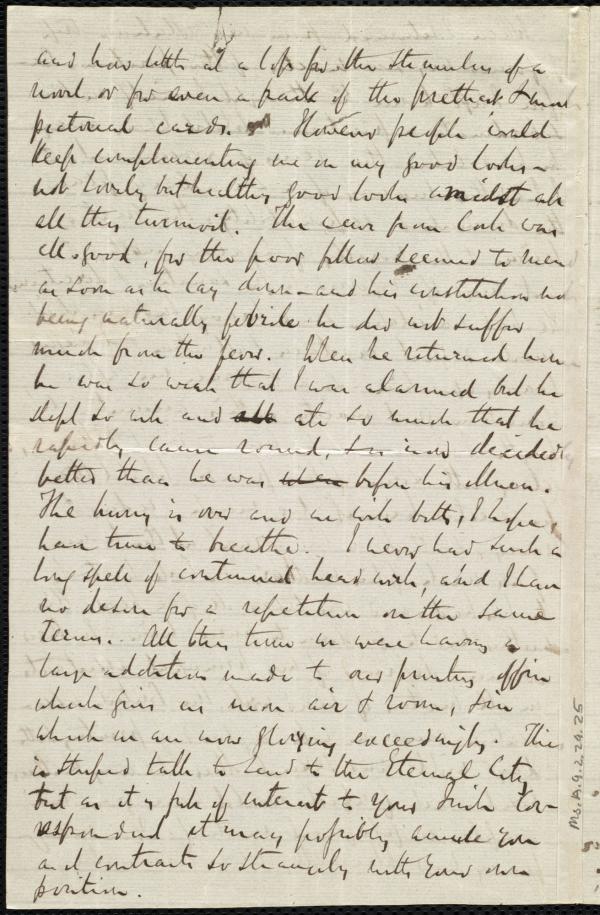 and how little at a loss for the stimulus of a
novel or for even a pack of the prettiest & most
pictorial cards. However people would
keep complimenting me on my good looks -
not lovely but healthy good looks amidst all
all this turmoil. The news from Cork was
all good, for the poor fellow seemed to mend
as soon as he lay down - and his constitution not
being naturally febrile he did not suffer
much from the fever. When he returned home
he was so weak that I was alarmed but he
slept so well and ate so much that he
rapidly came round, & is now decidedly
better than he was before his illness.
The hurry is over and we will both, I hope,
have time to breathe. I never had such a
long spell of continued head work, and I have
no desire for a repetition on the same
terms. All this time we were having a
large addition made to our printing office
which gives us more air & room, & in
which we are now glorying exceedingly. This
is stupid talk to send to the Eternal City
but as it is full of interest to your Irish Cor-
respondent it may possibly amuse you
and contrasts so strangely with your own
position.
Ms. A. 9. 2. 24. 25